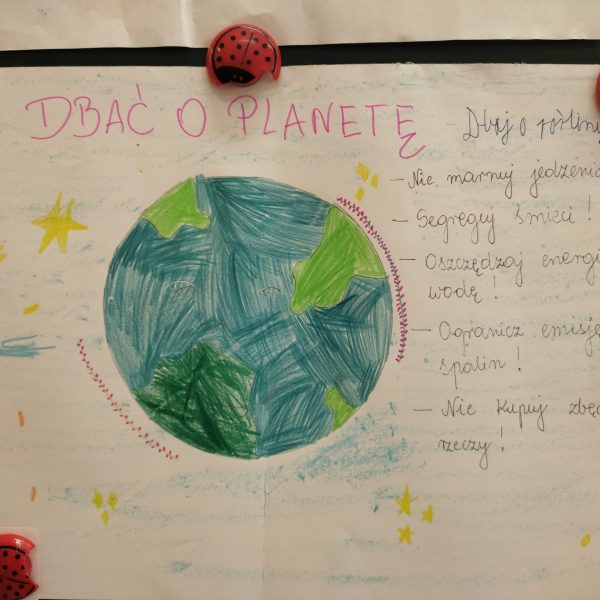 DBAĆ O PLANETĘ
- Dbaj o rośliny
- Nie marnuj jedzenia
- Segreguj śmieci!
- Oszczędzaj energi
wodę!
- Ogranicz emisję
spalin!
- Nie kupuj zbę
rzeczy!